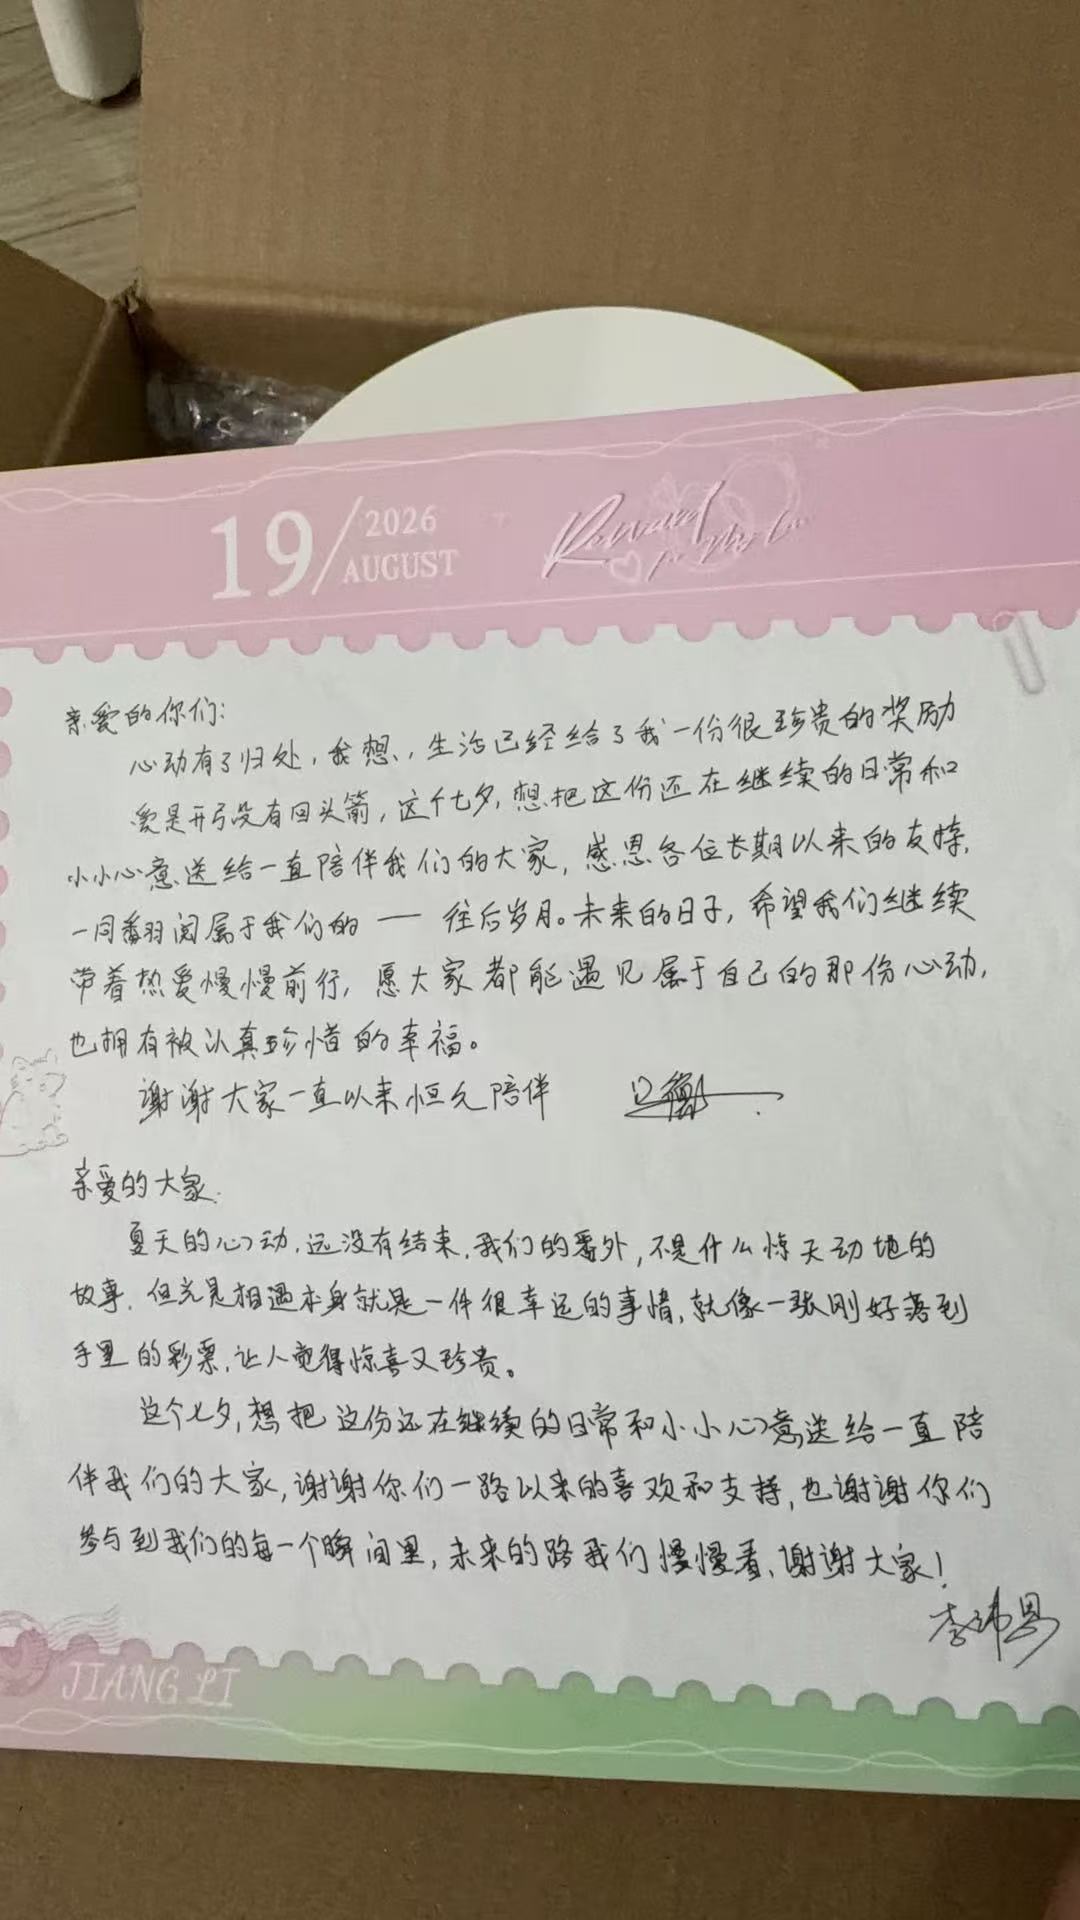 19/2026 AUGUST
Reward
亲爱的你们:
心动有了归处,我想,生活已经给了我一份很珍贵的奖励
爱是开弓没有回头箭,这个七夕,想把这份还在继续的日常和
小小心意送给一直陪伴我们的大家,感恩各位长期以来的支持,
一同翻阅属于我们的 — 往后岁月。未来的日子,希望我们继续
带着热爱慢慢前行,愿大家都能遇见属于自己的那份心动,
也拥有被认真珍惜的幸福。
谢谢大家一直以来恒久陪伴
亲爱的大家.
夏天的心动,远没有结束,我们的番外,不是什么惊天动地的
故事,但光是相遇本身就是一件很幸运的事情,就像一张刚好落到
手里的彩票,让人觉得惊喜又珍贵。
这个七夕,想把这份还在继续的日常和小小心意送给一直陪
伴我们的大家,谢谢你们一路以来的喜欢和支持,也谢谢你们
参与到我们的每一个瞬间里,未来的路我们慢慢看、谢谢大家!
JIANG LI